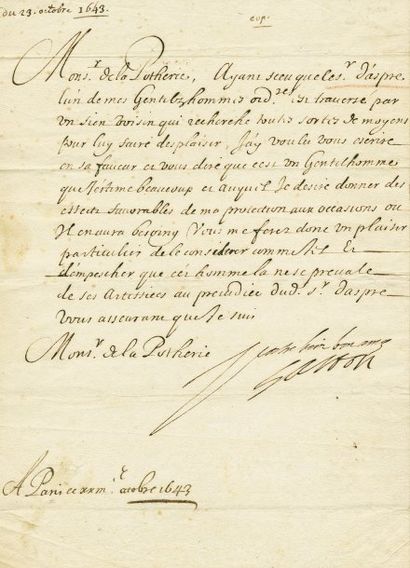 du 23. octobre 1643.
cop.
Mons.r de la Potherie, Ayant sceu que le s.r d'aspre
l'un de mes Gentilzhommes ord.res est traversé par
un sien voisin qui recherche toutes sortes de moyens
pour luy faire desplaisir. J'ay voulu vous escrire
en sa faveur et vous dire que c'est un Gentilhomme
que J'estime beaucoup et auquel Je desire donner des
effectz favorables de ma protection aux occasions ou
Il en aura besoing. Vous me ferez donc un plaisir
particulier de le considerer comme tel Et
d'empescher que cet homme la ne se prevale
de ses Artifices au prejudice dud. s.r d'aspre
Vous asseurant que Je suis
Mons.r de la Potherie
Vostre bien bon amy
Gaston
A Paris ce xxiii.e octobre 1643